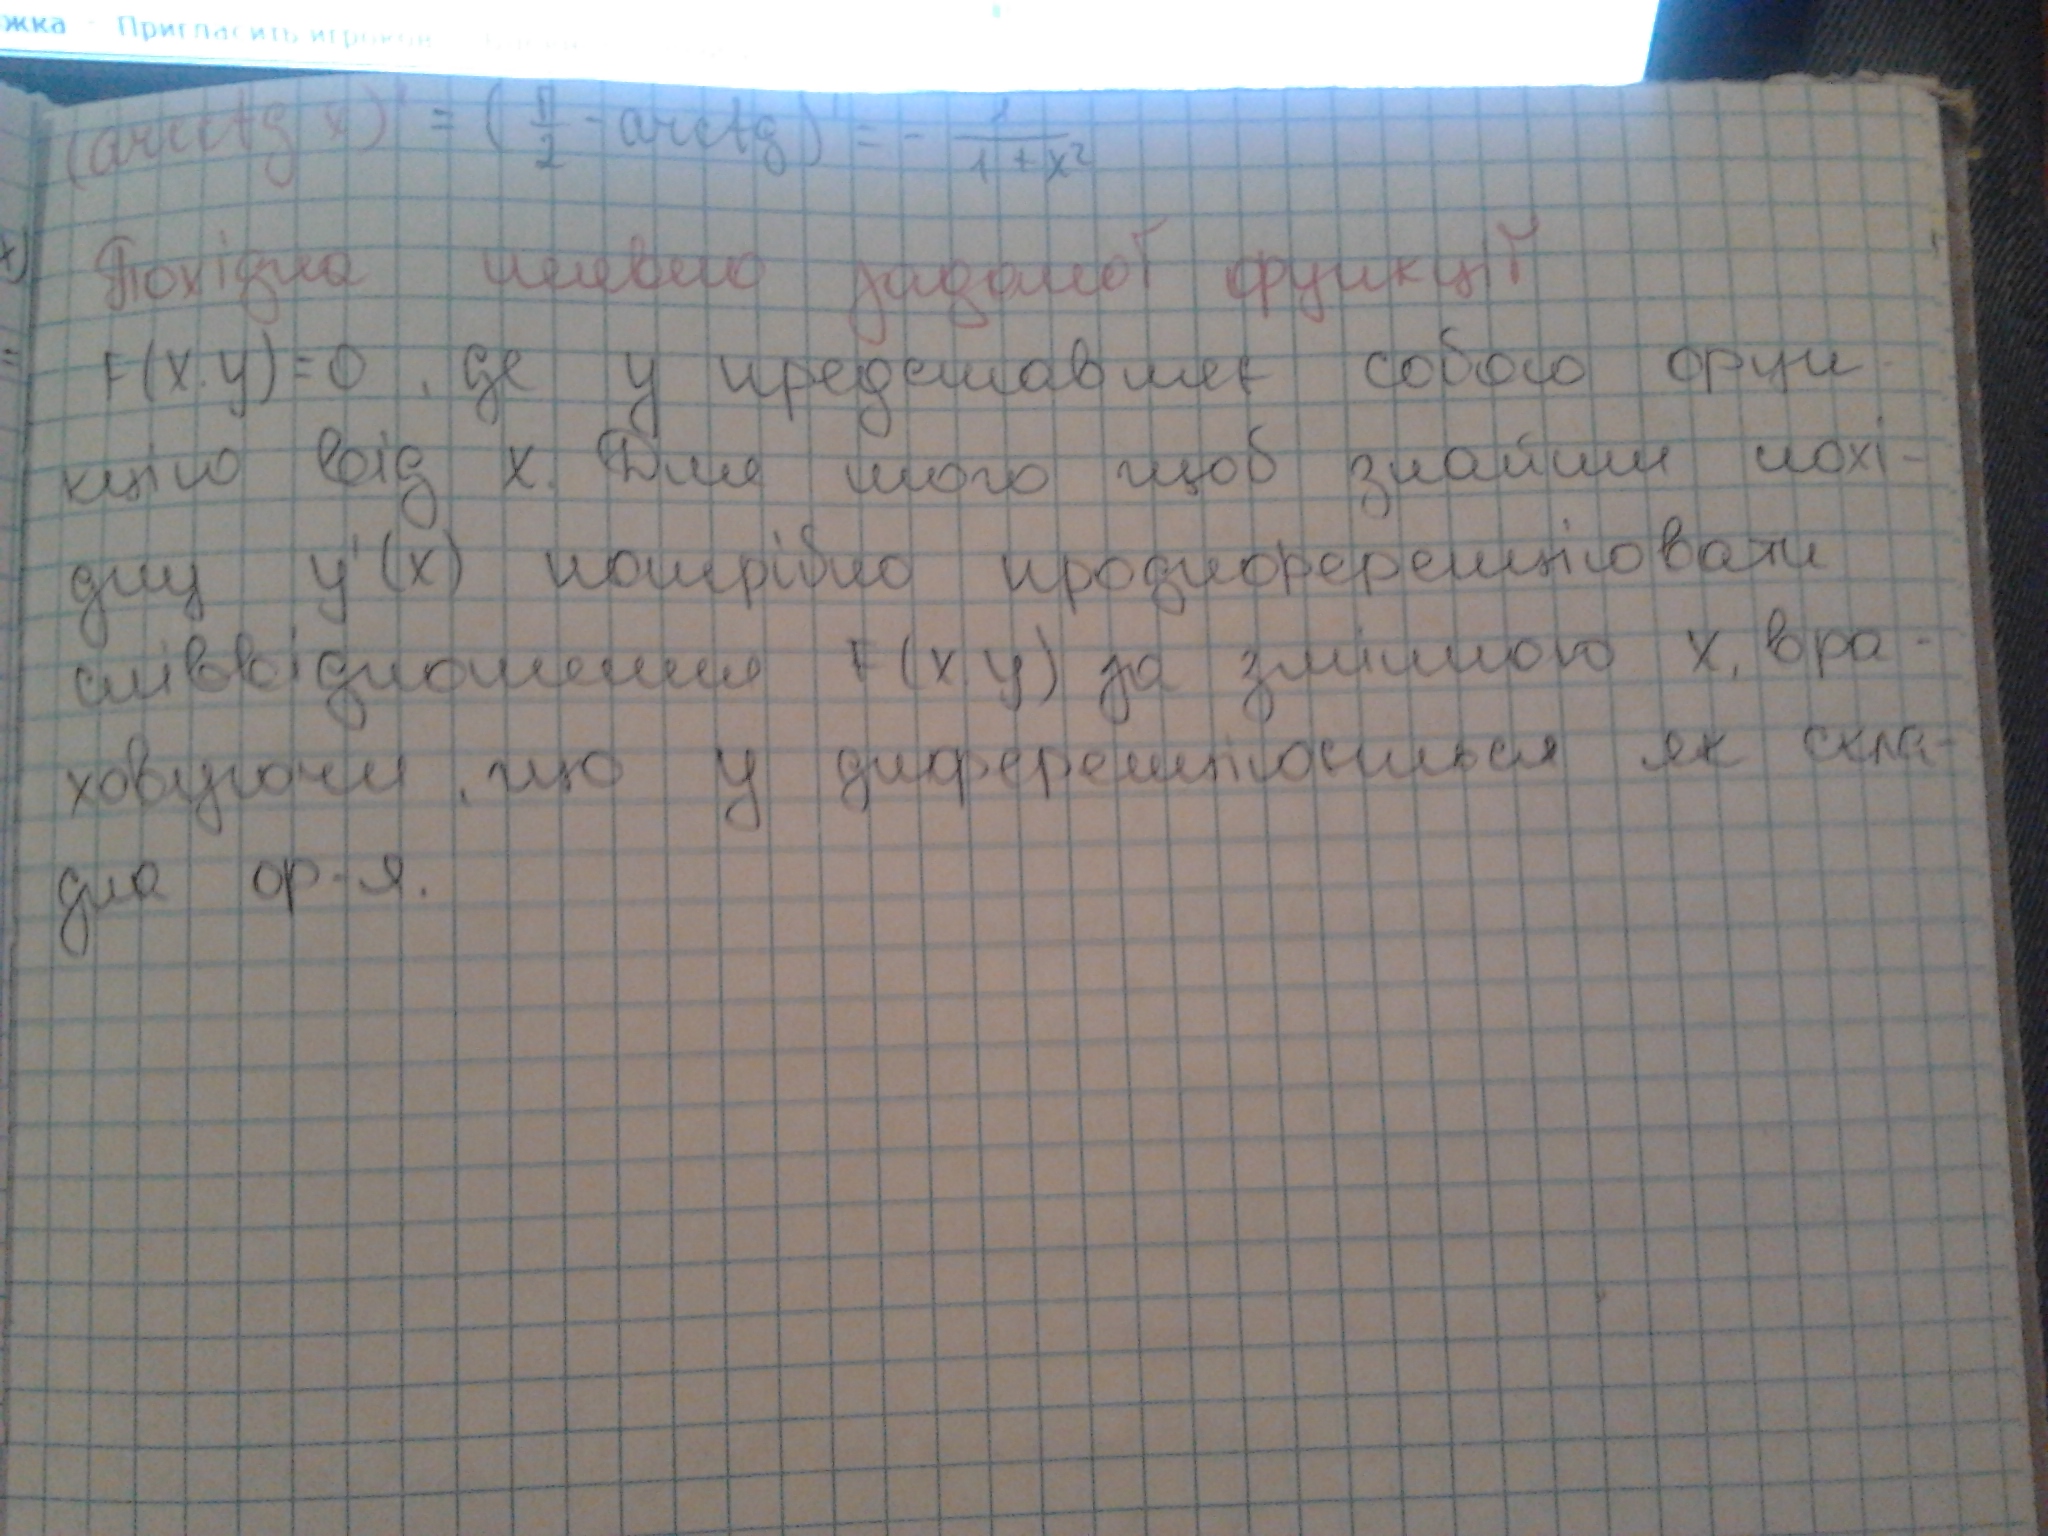 жка - Пригласить игроков
(arcctg x)' = (π/2 - arctg)' = - 1/(1+x²)
Похідна неявно заданої функції
F(x.y)=0, де y представляє собою фун-
кцію від x. Для того щоб знайти похі-
дну y'(x) потрібно продиференціювати
співвідношення F(x.y) за змінною x, вра-
ховуючи, що y диференціюється як скла-
дна ф-я.